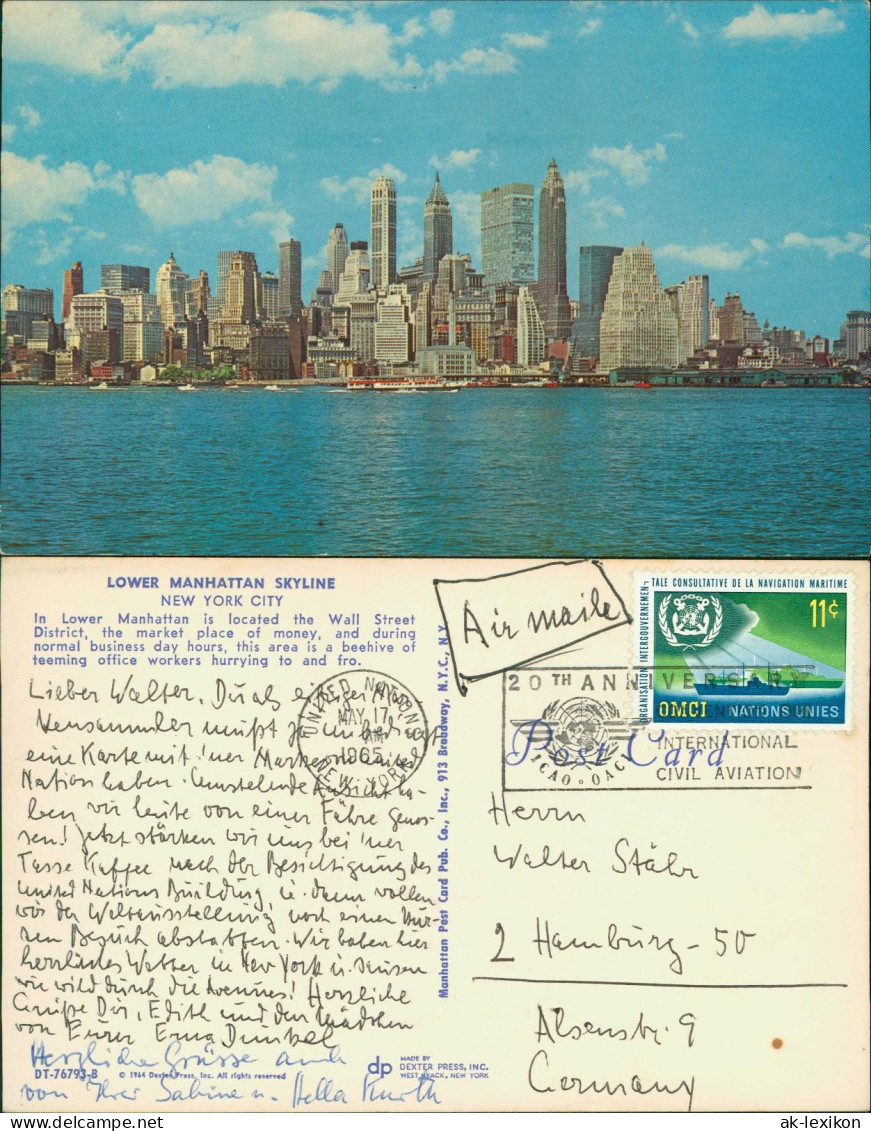 LOWER MANHATTAN SKYLINE
NEW YORK CITY
In Lower Manhattan is located the Wall Street
District, the market place of money, and during
normal business day hours, this area is a beehive of
teeming office workers hurrying to and fro.
Lieber Walter. Du als eifriger
müßt ja unbedingt
eine Karte mit 'ner Marke von United
Nation haben. Umstehende Ansicht ha-
ben wir heute von einer Fähre genos-
sen! Jetzt stärken wir uns bei 'ner
Tasse Kaffee nach der Besichtigung des
United Nations Building, u. dann wollen
wir der Weltausstellung noch einen kur-
zen Besuch abstatten. Wir haben hier
herrliches Wetter in New York u. sausen
wie wild durch die Avenues! Herzliche
Grüße Dir, Edith und den Mädchen
von Eurer Erna Dunkel
Herzliche Grüsse auch
von Ihrer Sabine u. Hella Kurth
DT-76793-B © 1964 Dexter Press, Inc. All rights reserved
Manhattan Post Card Pub. Co., Inc., 913 Broadway, N.Y.C., N.Y.
dp
MADE BY
DEXTER PRESS, INC.
WEST NYACK, NEW YORK
Air maile
UNITED NATIONS
MAY 17
1965
NEW YORK
20TH ANNIVERSARY
INTERNATIONAL
CIVIL AVIATION
ICAO · OACI
Post Card
ORGANISATION INTERGOUVERNEMEN-
TALE CONSULTATIVE DE LA NAVIGATION MARITIME
11¢
OMCI NATIONS UNIES
Herrn
Walter Stähr
2 Hamburg-50
Alsenstr. 9
Germany
ak-lexikon